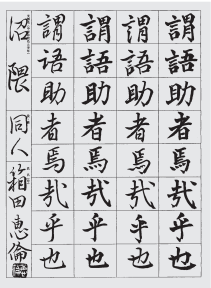 謂語助者焉哉乎也
謂語助者焉哉乎也
謂語助者焉哉乎也
謂語助者焉哉乎也
沼隈 同人 箱田恵倫